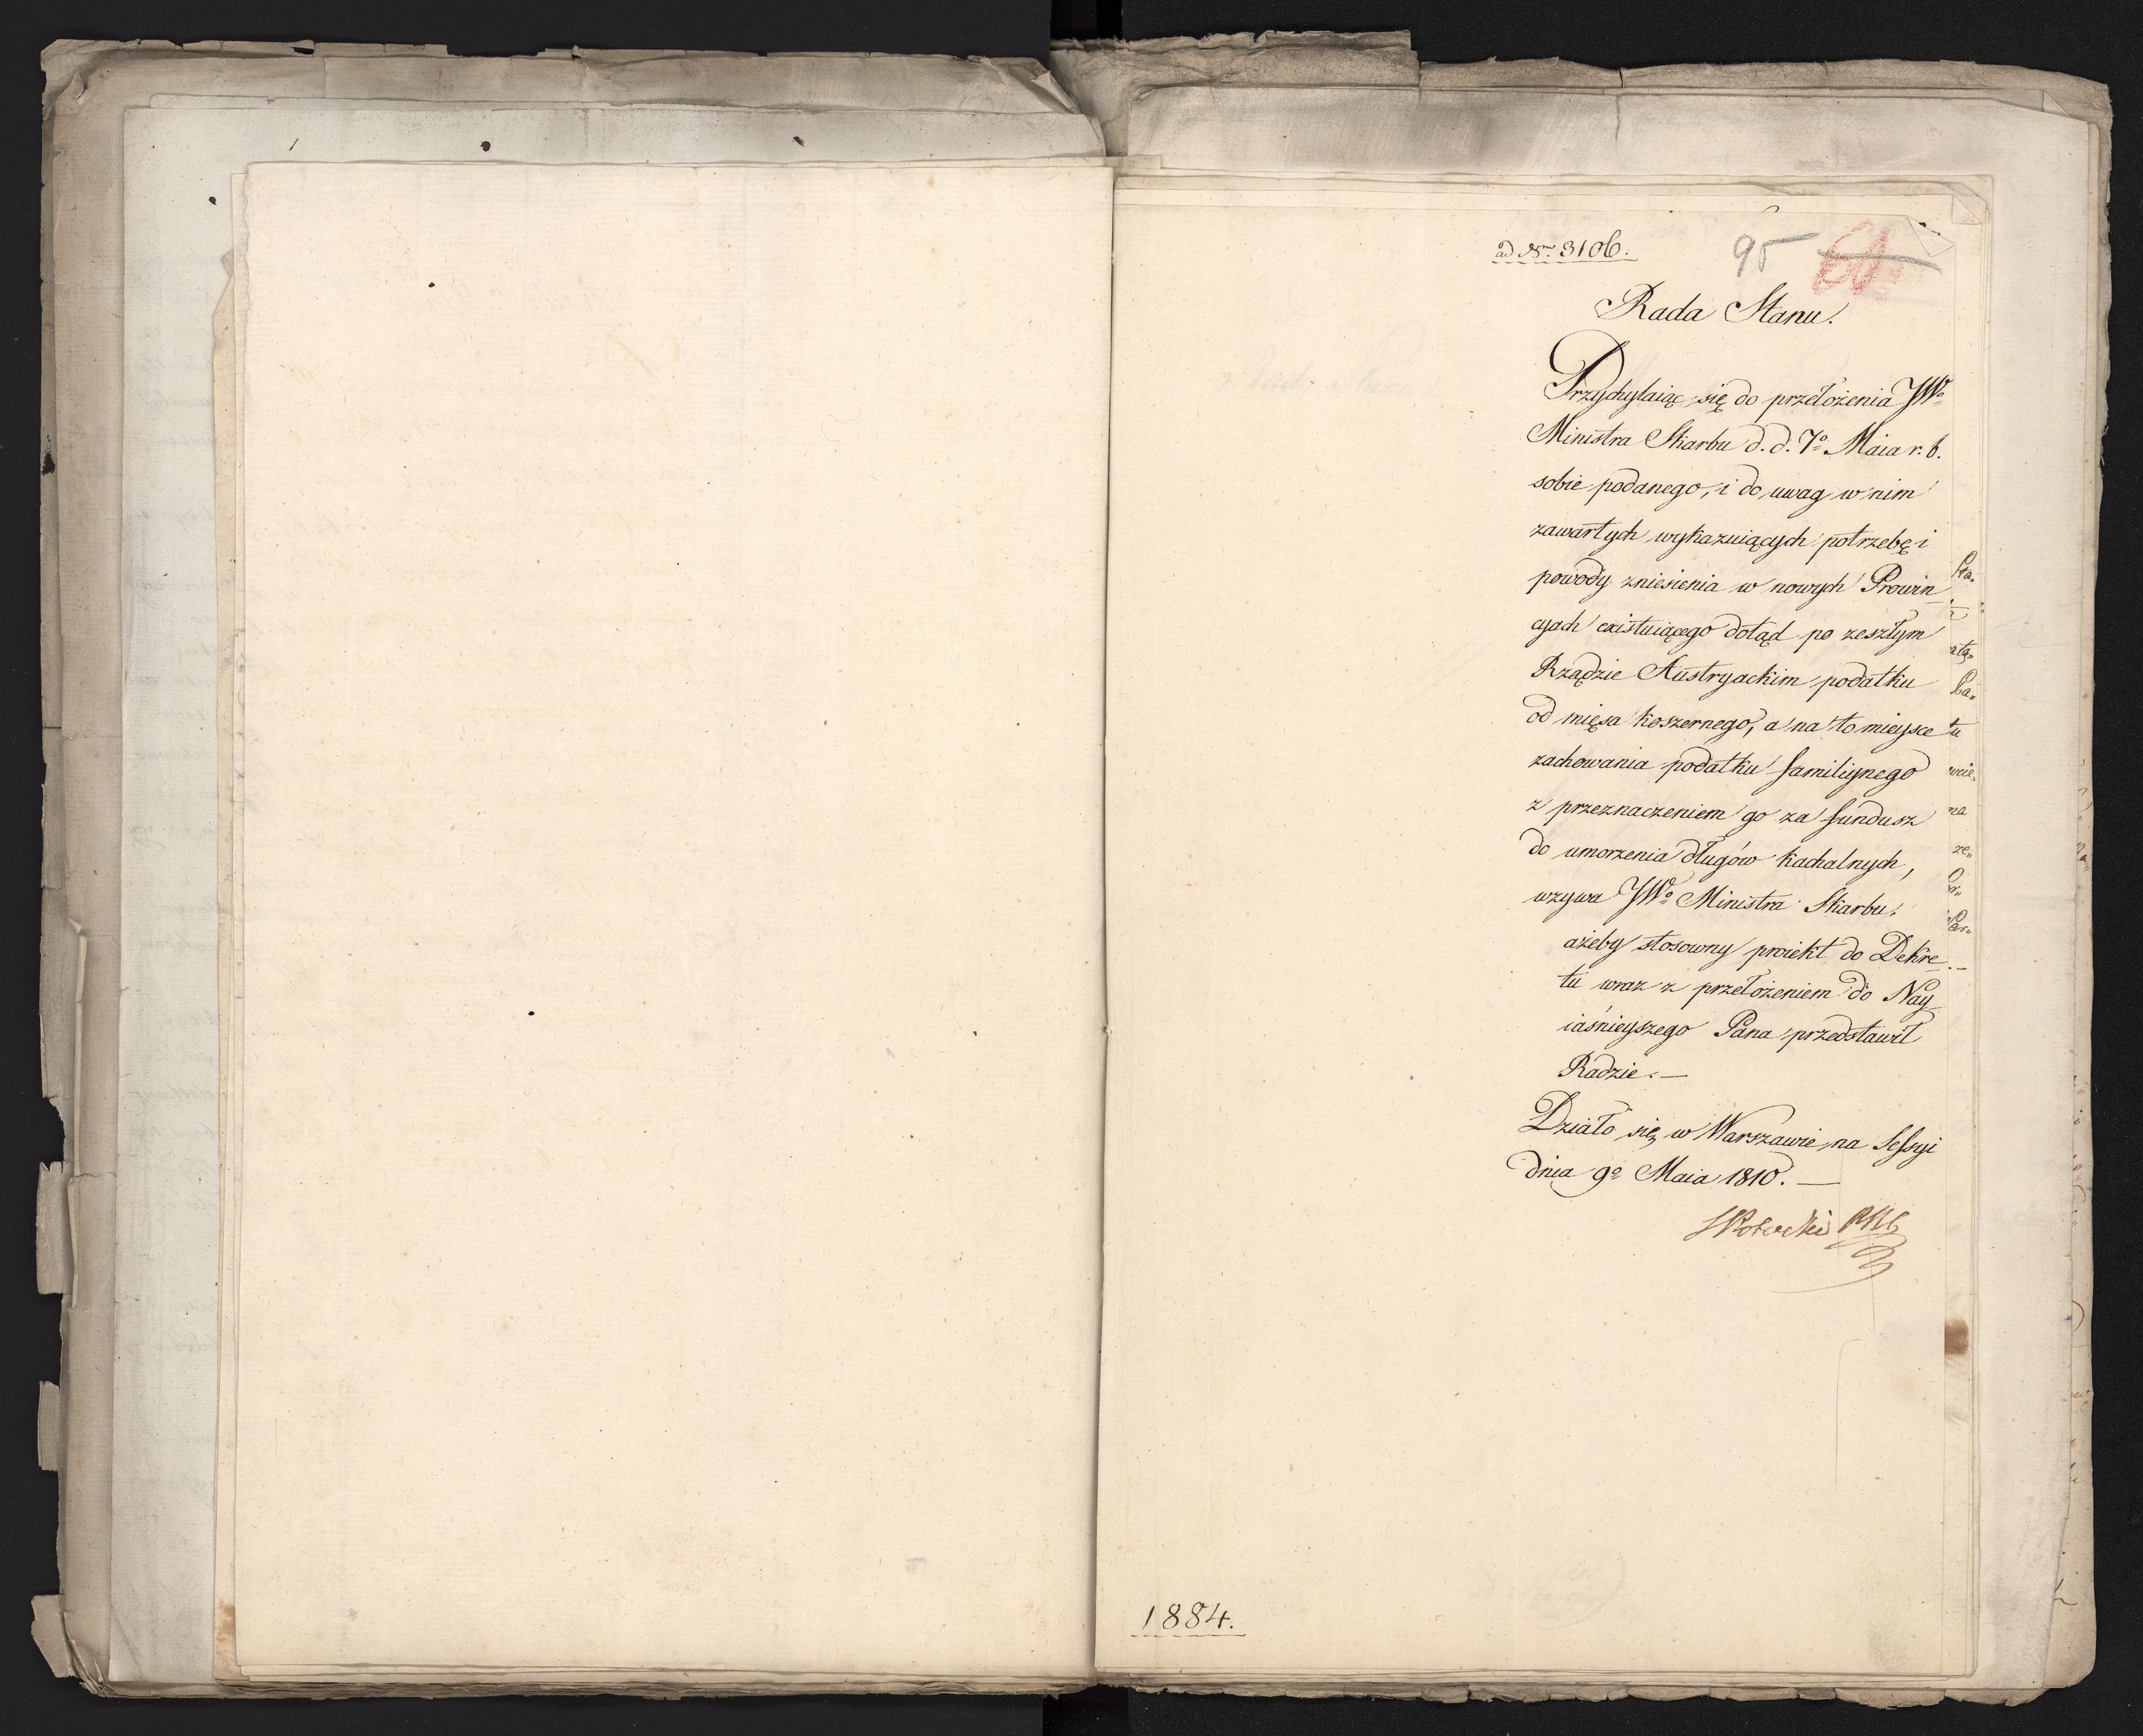 ad Nrm 3106.
95
Rada Stanu.
Przychylaiąc się do przełożenia JWo
Ministra Skarbu d. d. 7o Maia r. b.
sobie podanego, i do uwag w nim
zawartych wykazuiących potrzebę i
powody zniesienia w nowych Prowin
cyach existuiącego dotąd po zeszłym
Rządzie Austryackim podatku
od mięsa koszernego, a na to mieysce
zachowania podatku familiynego
z przeznaczeniem go za fundusz
do umorzenia długów kachalnych,
wzywa JWo Ministra Skarbu:
ażeby stosowny proiekt do Dekre
tu wraz z przełożeniem do Nay
iaśnieyszego Pana przedstawił
Radzie. —
Działo się w Warszawie na Sessyi
dnia 9o Maia 1810. —
Potocki
1884.